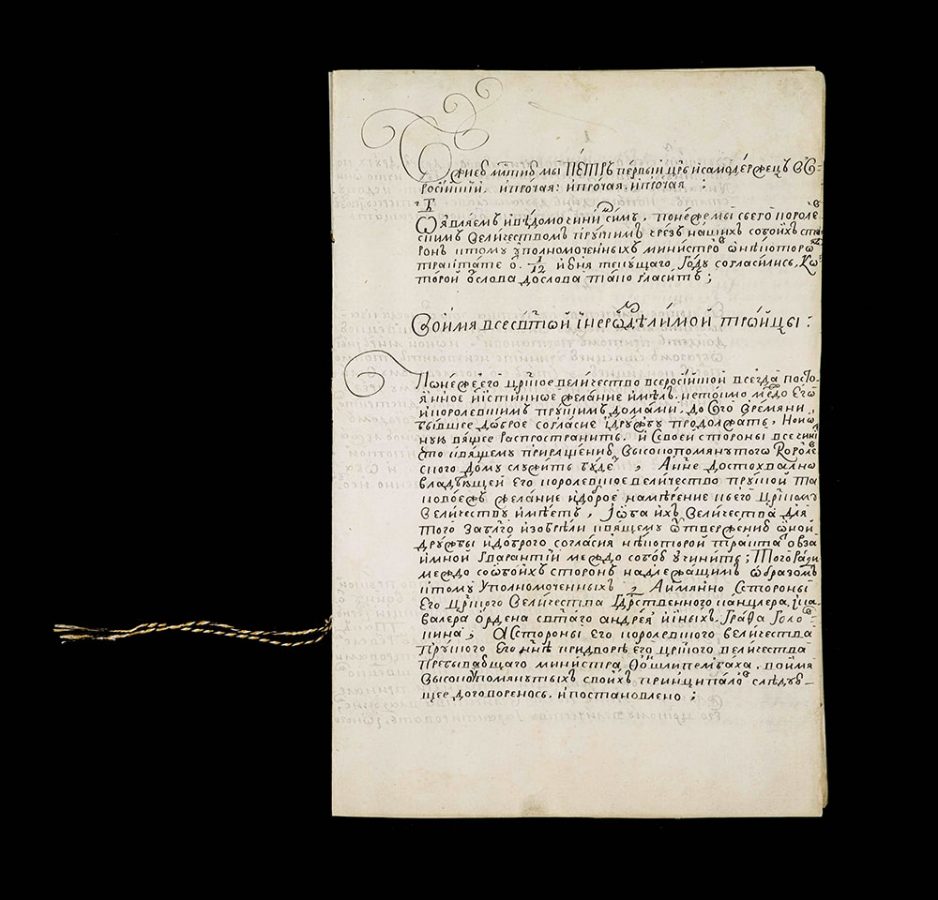 Бжиею млтию мы ПЕТРЪ первый црь исамодержецъ всероссиский, ипротчая: ипротчая, ипротчая:
Объявляемъ ивѣдомо чинимъ симъ, понежемы сьего королевскимъ величествомъ прускимъ чрезъ нашихъ собоихъ сторонъ ктому уполномоченныхъ министровъ онѣкоторомъ
трактате 1/12 июня текущаго, году согласились, которой ѿслова дослова тако гласитъ;
Воимя всесвѣтой інераздѣлимой тройцы:
Понеже его црьское величество всеросійской всегда постоянное иистинное желание имѣлъ, нетокмо междо его
икоролевскимъ прускимъ домами, до сего времяни
бывшее доброе согласие ідружбу продолжать, но ионую вящее распространить, и Своей стороны все чинить
что квящему приращению высокопомянутого Королевского дому служить будетъ, Аине достохвално
владѣющей Его королевское величество пруской таковоежъ желание идоброе намѣрение кьего црьскому
величеству имѣетъ, Іоба ихъ величества для
того заблго изобрѣли квящему ѿтвержению оной
дружбы идоброго согласия нѣкоторой трактатъ обзаимной гваранти междо собою учинить; Того ради
междо собоихъ сторонъ надлежащимъ образомъ
ктому уполномоченныхъ, Аимянно Состороны
Его црьского величества Гдрственного канцлера, ікавалера ордена свѣтаго андрея ииныхъ. графа Головкина; Асстороны его королевского величества
пруского Его ннѣ придворѣ его црьского величества
пребывающаго министра Фоншлипембаха, воимя
высокопомянутыхъ своихъ принципаловъ слѣдующее договоренось, ипостановлено;